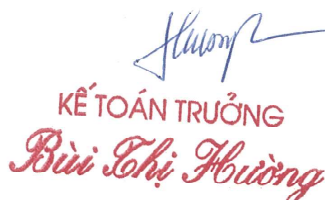 Hương
KẾ TOÁN TRƯỞNG
Bùi Thị Hường